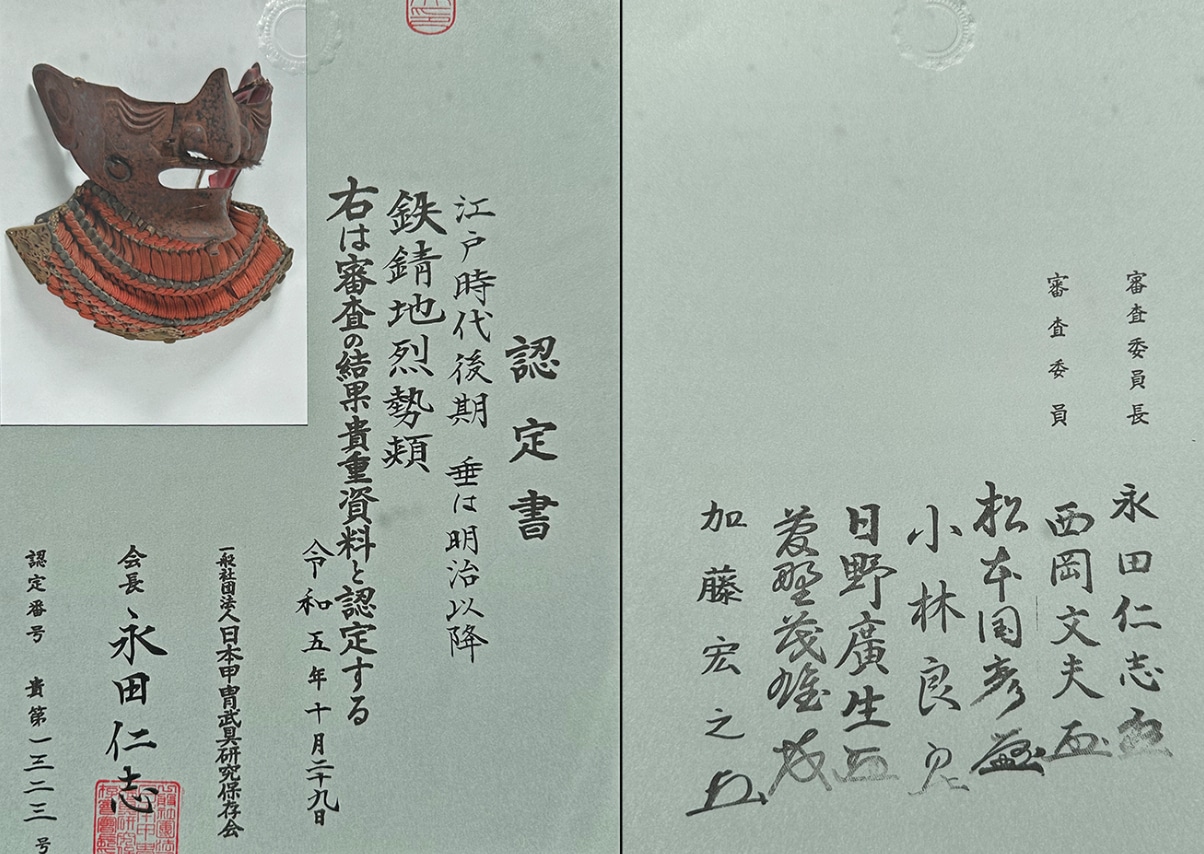 認定書
江戸時代後期　垂は明治以降
鉄錆地烈勢頬
右は審査の結果貴重資料と認定する
令和五年十月二十九日
一般社団法人日本甲冑武具研究保存会
会長　永田仁志
認定番号　貴第一三二三号
審査委員長　永田仁志
審査委員　西岡文夫
松本国彦
小林良
日野廣生
茂雄
加藤宏之